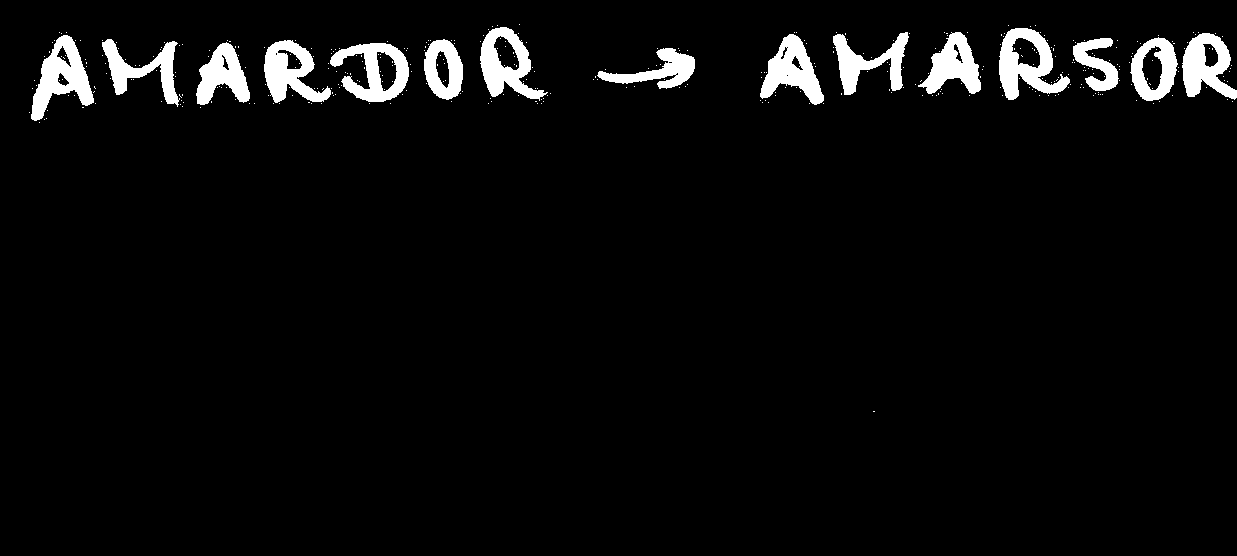 AMARDOR → AMARSOR